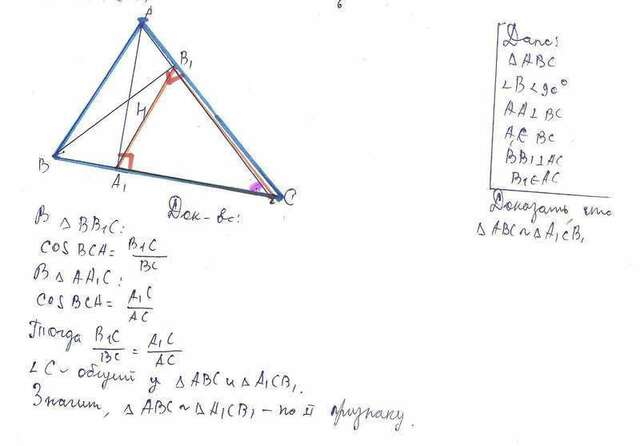 б
A
B₁
H
B
A₁
C
2
Дано:
△ABC
∠B<90°
AA⊥BC
A₁∈BC
BB₁⊥AC
B₁∈AC
Доказать что
△ABC~△A₁CB₁
Док-во:
В △BB₁C:
cos BCA = B₁C/BC
В △AA₁C:
cos BCA = A₁C/AC
Тогда B₁C/BC = A₁C/AC
∠C - общий у △ABC и △A₁CB₁.
Значит, △ABC ~ △A₁CB₁ - по II признаку.